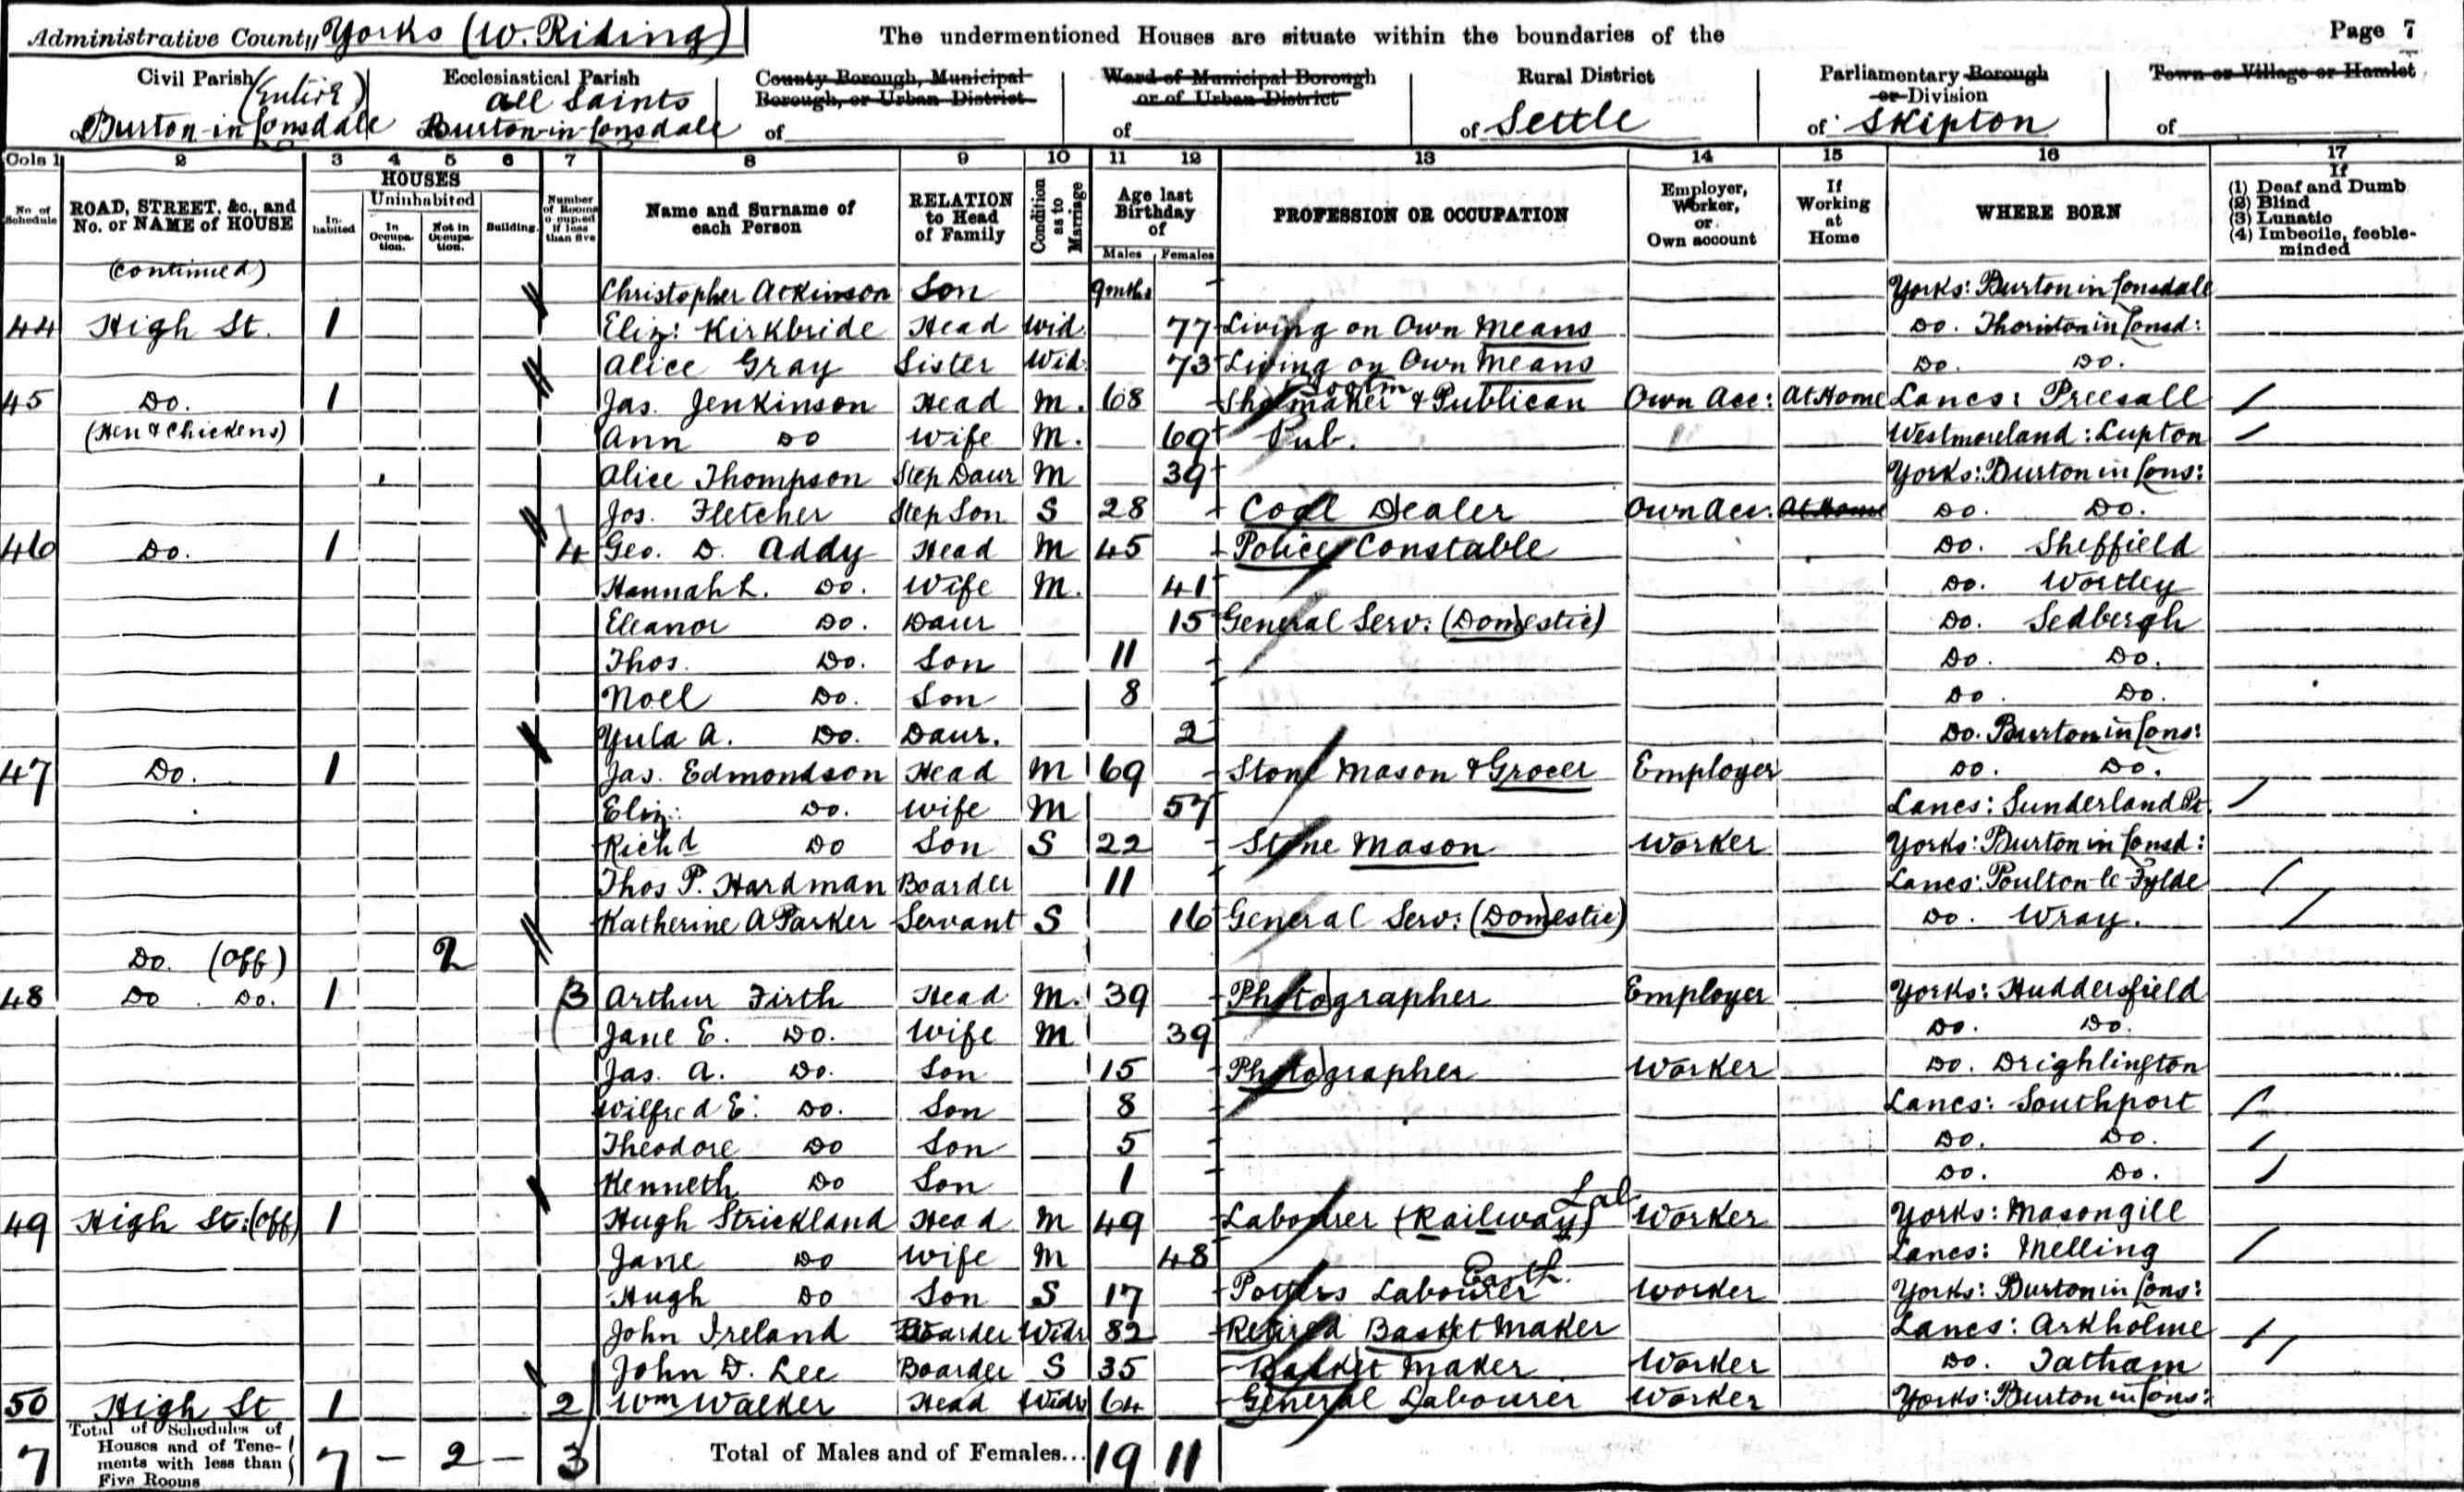 Administrative County Yorks (W. Riding) The undermentioned Houses are situate within the boundaries of the Page 7
Civil Parish (Entire) Burton-in-Lonsdale
Ecclesiastical Parish All Saints Burton-in-Lonsdale
County Borough, Municipal Borough, or Urban District of
Ward of Municipal Borough or of Urban District of
Rural District of Settle
Parliamentary Borough or Division of Skipton
Town or Village or Hamlet of
Cols 1 2 3 4 5 6 7 8 9 10 11 12 13 14 15 16 17
No. of Schedule
ROAD, STREET, &c., and No. or NAME of HOUSE
HOUSES
Inhabited
Uninhabited
In Occupation.
Not in Occupation.
Building.
Number of Rooms occupied if less than five
Name and Surname of each Person
RELATION to Head of Family
Condition as to Marriage
Age last Birthday of
Males Females
PROFESSION OR OCCUPATION
Employer, Worker, or Own account
If Working at Home
WHERE BORN
If
(1) Deaf and Dumb
(2) Blind
(3) Lunatic
(4) Imbecile, feeble-minded
(Continued) Christopher Atkinson Son 9mths Yorks: Burton in Lonsdale
44 High St. 1 Eliz: Kirkbride Head Wid. 77 Living on Own Means Do. Thornton in Lonsd:
Alice Gray Sister Wid. 73 Living on Own Means Do. Do.
45 Do. 1 Jas. Jenkinson Head M. 68 Shoemaker & Publican Own Acc: At Home Lancs: Preesall
(Hen & Chickens) Ann Do Wife M. 69 Pub. Westmoreland: Lupton
Alice Thompson Step Daur M 39 Yorks: Burton in Lons:
Jos. Fletcher Step Son S 28 Coal Dealer Own Acc: At Home Do. Do.
46 Do. 1 4 Geo. D. Addy Head M 45 Police Constable Do. Sheffield
Hannah L. Do. Wife M. 41 Do. Wortley
Eleanor Do. Daur 15 General Serv: (Domestic) Do. Sedbergh
Thos. Do. Son 11 Do. Do.
Noel Do. Son 8 Do. Do.
Yula A. Do. Daur. 2 Do. Burton in Lons:
47 Do. 1 Jas. Edmondson Head M 69 Stone Mason & Grocer Employer Do. Do.
Eliz: Do. Wife M 57 Lancs: Sunderland Pt.
Richd Do Son S 22 Stone Mason Worker Yorks: Burton in Lonsd:
Thos P. Hardman Boarder 11 Lancs: Poulton-le-Fylde
Katherine A Parker Servant S 16 General Serv: (Domestic) Do. Wray.
Do. (Off) 2
48 Do. Do. 1 3 Arthur Firth Head M. 39 Photographer Employer Yorks: Huddersfield
Jane E. Do. Wife M 39 Do. Do.
Jas. A. Do. Son 15 Photographer Worker Do. Drighlington
Wilfred E: Do. Son 8 Lancs: Southport
Theodore Do Son 5 Do. Do.
Kenneth Do Son 1 Do. Do.
49 High St: (Off) 1 Hugh Strickland Head M 49 Labourer (Railway) Lab Worker Yorks: Masongill
Jane Do Wife M 48 Lancs: Melling
Hugh Do Son S 17 Potters Labourer Earth. Worker Yorks: Burton in Lons:
John Ireland Boarder Widr 82 Retired Basket Maker Lancs: Arkholme
John D. Lee Boarder S 35 Basket Maker Worker Do. Tatham
50 High St 1 2 Wm Walker Head Widr 64 General Labourer Worker Yorks: Burton in Lons:
7 Total of Schedules of Houses and of Tenements with less than Five Rooms 7 – 2 – 3 Total of Males and of Females... 19 11